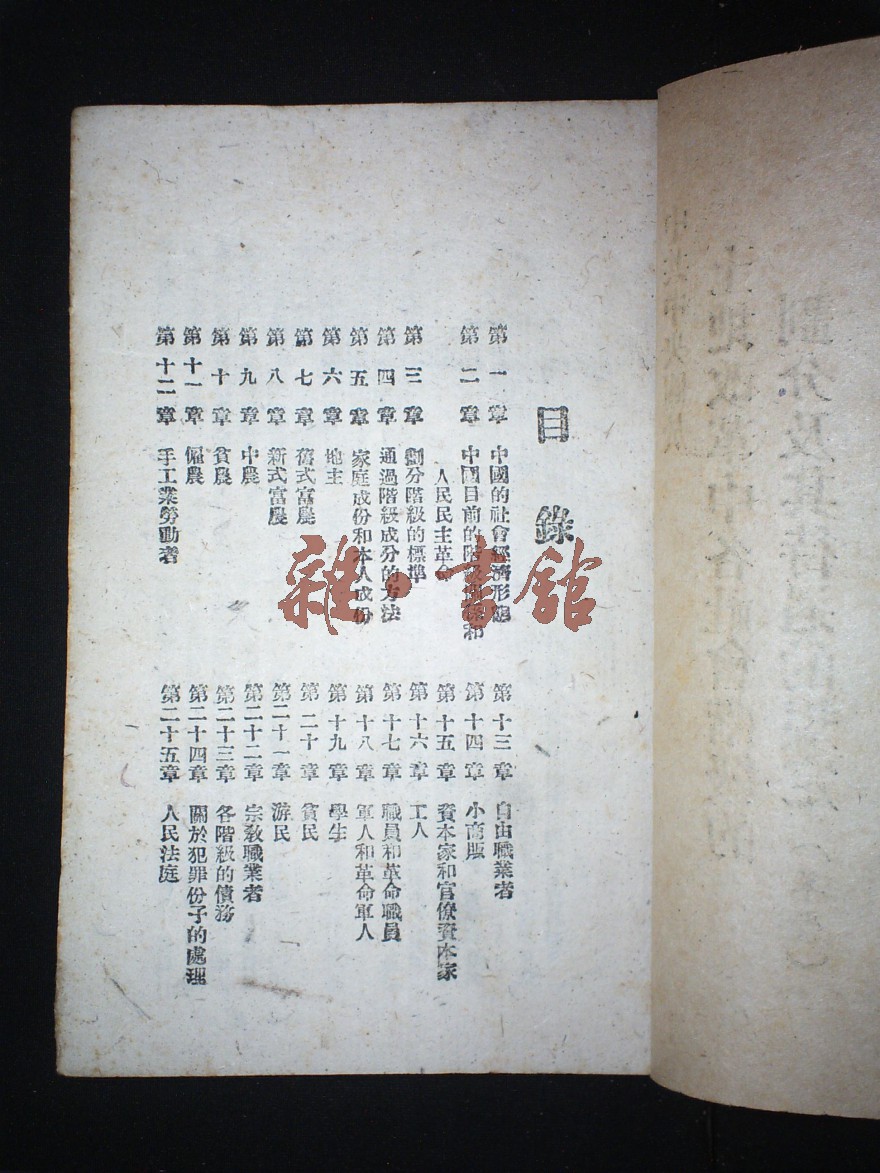 目錄
第一章 中國的社會經濟形態
第二章 中國目前的階級關係和
人民民主革命
第三章 劃分階級的標準
第四章 通過階級成分的方法
第五章 家庭成份和本人成份
第六章 地主
第七章 舊式富農
第八章 新式富農
第九章 中農
第十章 貧農
第十一章 僱農
第十二章 手工業勞動者
第十三章 自由職業者
第十四章 小商販
第十五章 資本家和官僚資本家
第十六章 工人
第十七章 職員和革命職員
第十八章 軍人和革命軍人
第十九章 學生
第二十章 貧民
第二十一章 游民
第二十二章 宗教職業者
第二十三章 各階級的債務
第二十四章 關於犯罪份子的處理
第二十五章 人民法庭
雜·書館